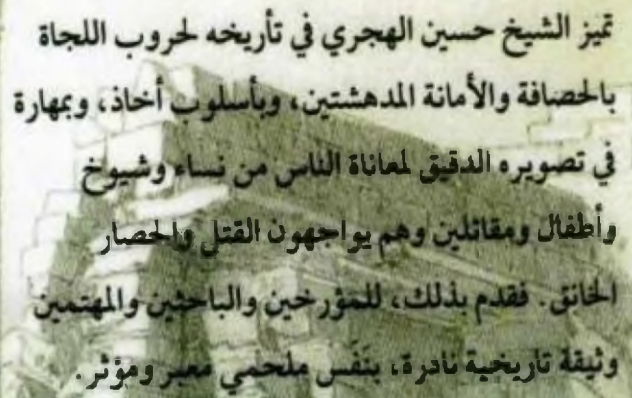 تميز الشيخ حسين الهجري في تأريخه لحروب اللجاة
بالحصافة والأمانة المدهشتين، وبأسلوب أخاذ، وبمهارة
في تصويره الدقيق لمعاناة الناس من نساء وشيوخ
وأطفال ومقاتلين وهم يواجهون القتل والحصار
الخانق. فقدم بذلك، للمؤرخين والباحثين والمهتمين
وثيقة تاريخية نادرة، بنَفَس ملحمي معبر ومؤثر.